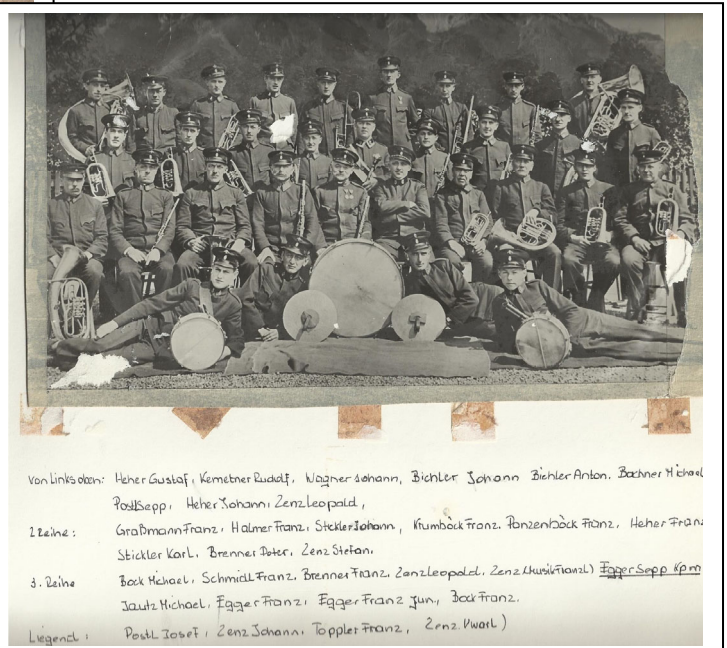 Von Links oben: Heher Gustaf, Kemetner Rudolf, Wagner Johann, Bichler Johann Bichler Anton. Bachner Michael
Postl Sepp, Heher Johann, Zenz Leopold,
2 Reihe: Graßmann Franz, Halmer Franz, Stickler Johann, Krumböck Franz. Panzenböck Franz, Heher Franz
Stickler Karl, Brenner Peter, Zenz Stefan.
3. Reihe Bock Michael, Schmidl Franz, Brenner Franz, Zenz Leopold, Zenz (Musik Franzl) Egger Sepp Kpm
Jautz Michael, Egger Franz, Egger Franz jun., Bock Franz.
Liegend: Postl Josef, Zenz Johann, Toppler Franz, Zenz.